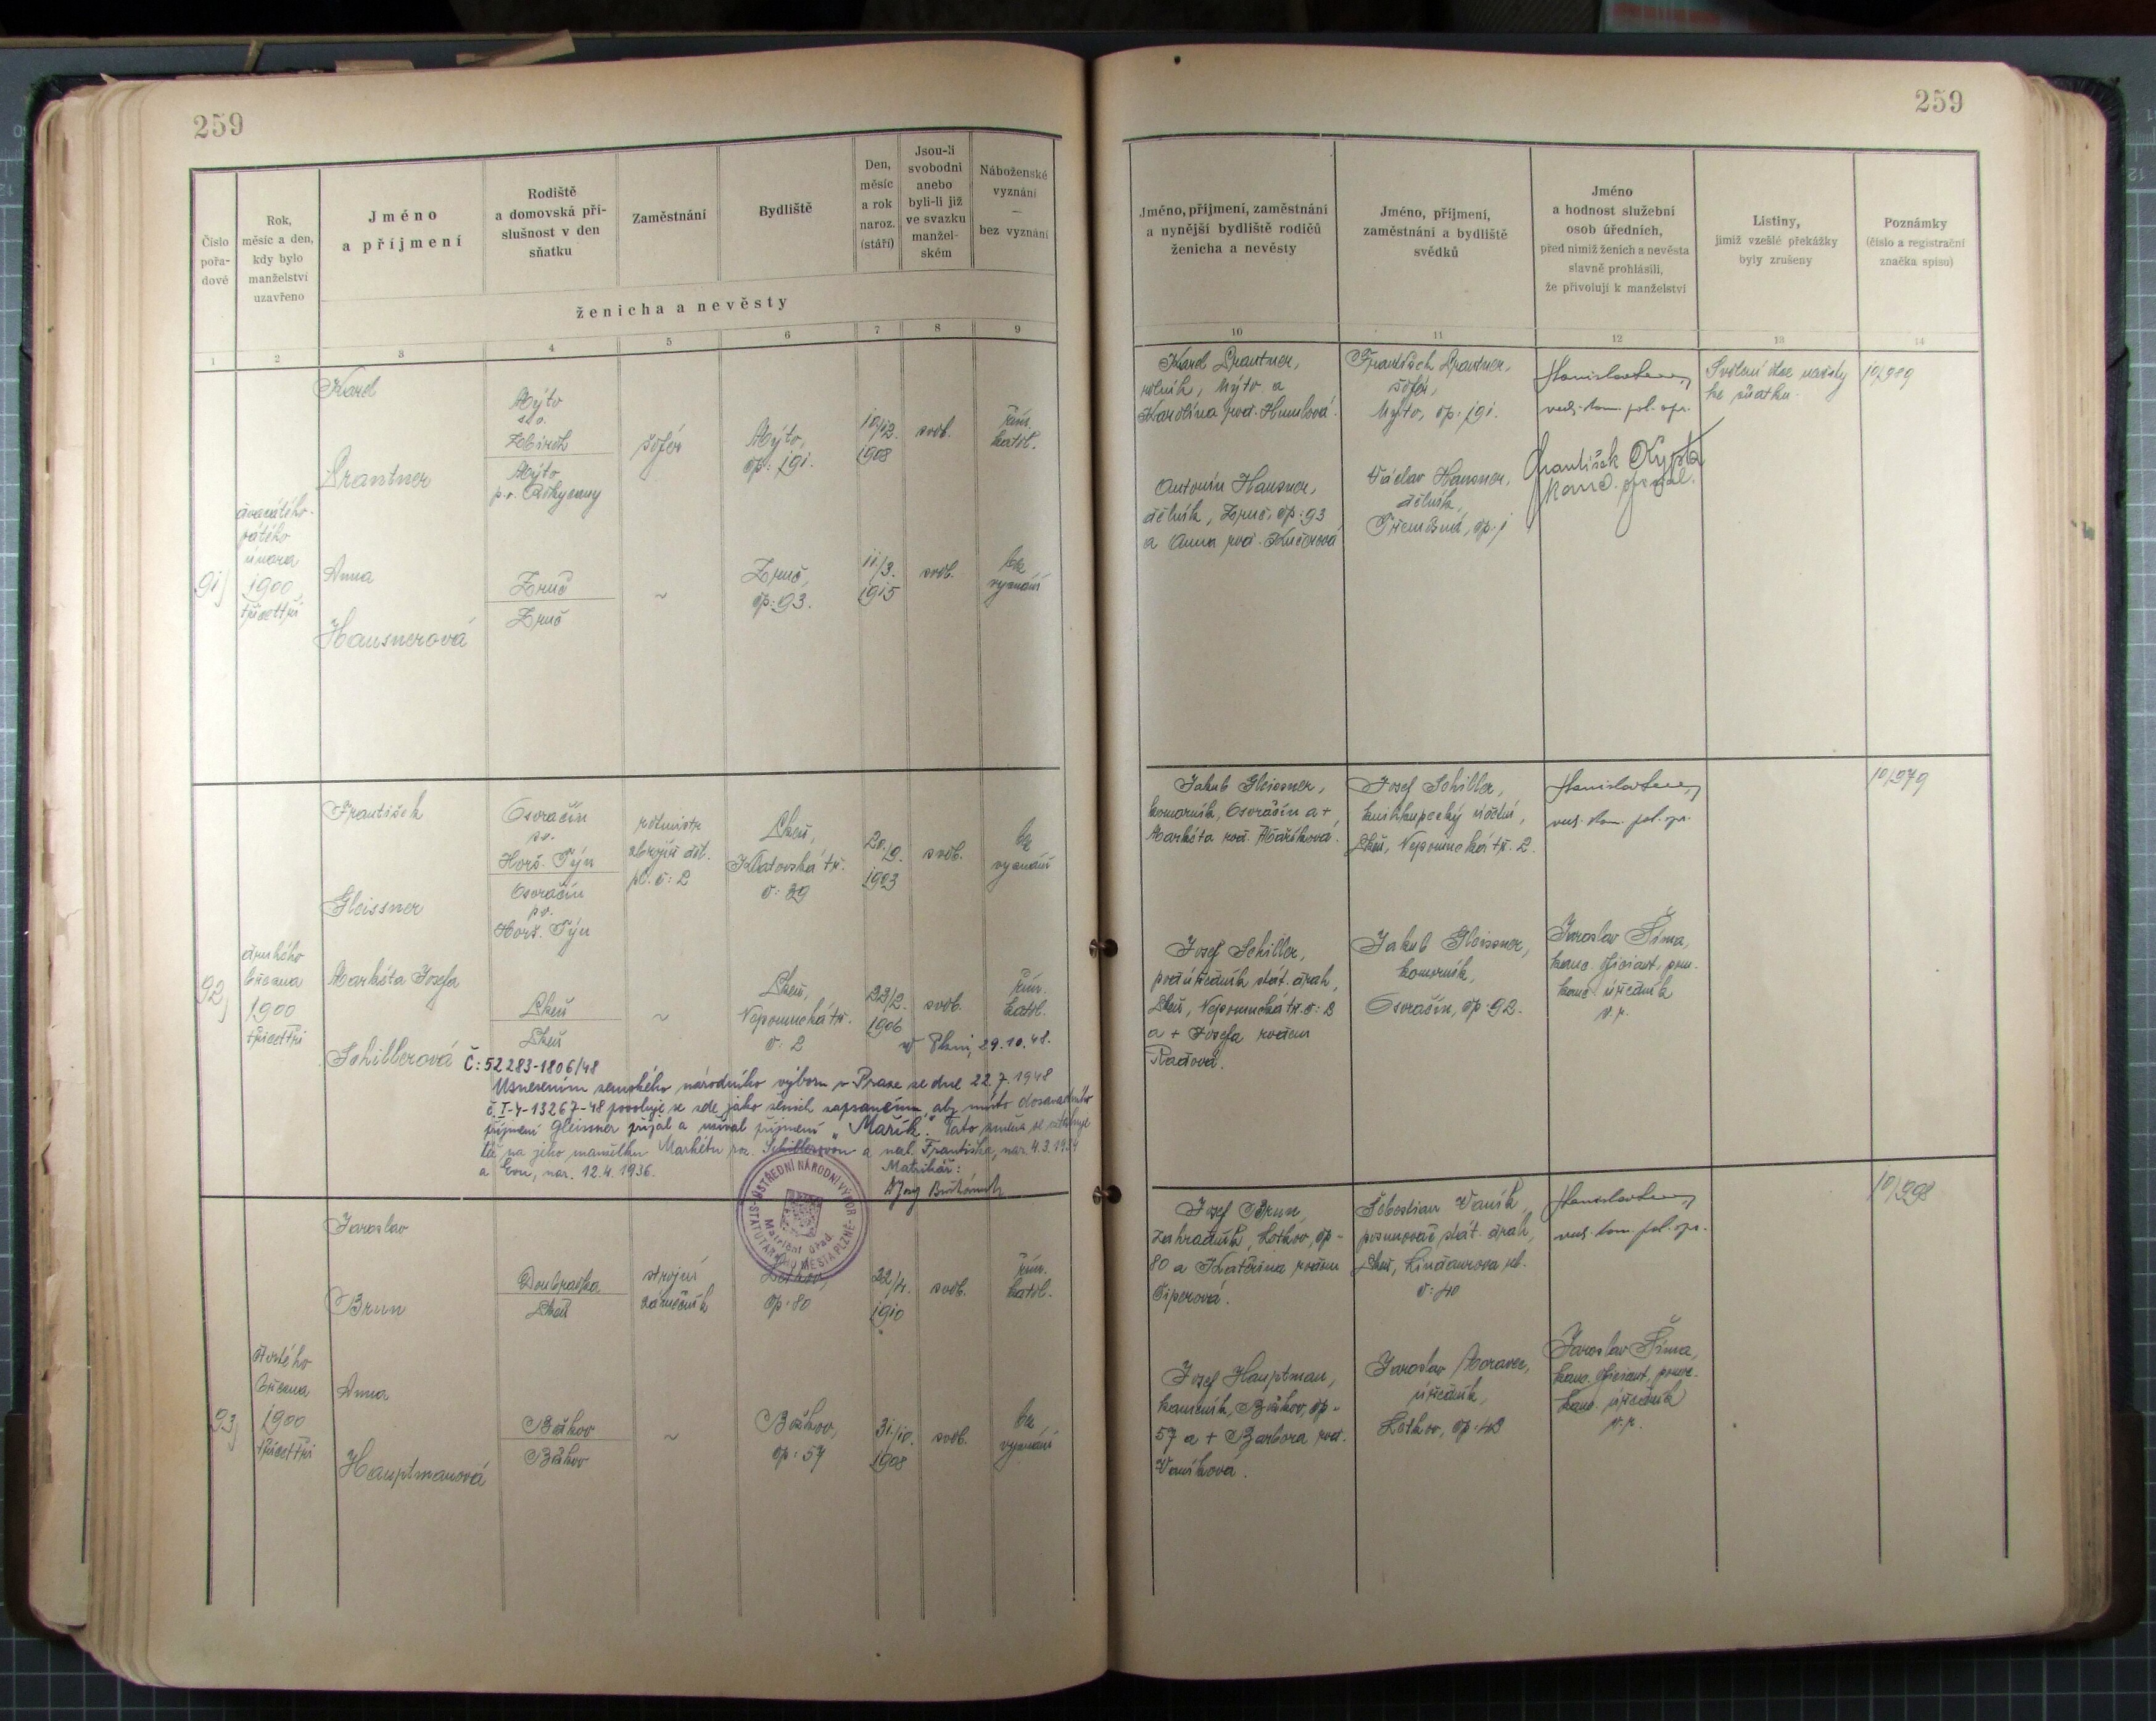 259
Číslo pořa-dové
Rok, měsíc a den, kdy bylo manželství uzavřeno
Jméno a příjmení
Rodiště a domovská pří-slušnost v den sňatku
Zaměstnání
Bydliště
Den, měsíc a rok naroz. (stáří)
Jsou-li svobodni anebo byli-li již ve svazku manžel-ském
Náboženské vyznání — bez vyznání
ženicha a nevěsty
1 2 3 4 5 6 7 8 9
91)
dvacátého-
pátého
února
1900
třicettři
Karel
Brantner
Mýto
Zbiroh
Mýto
p.o. Rokycany
šofér
Mýto,
čp: 191.
10/12.
1908
svob.
řím.
katol.
Anna
Hausnerová
Zruč
Zruč
~
Zruč,
čp: 93.
11/3.
1915
svob.
bez
vyznání
92)
druhého
března
1900
třicettři
František
Gleissner
Osvračín
po.
Horš. Týn
Osvračín
po.
Horš. Týn
rotmistr
zbrojní děl.
pl. č: 2
Plzeň,
Klatovská tř.
č: 29
20./9.
1903
svob.
bez
vyznání
Markéta Josefa
Schillerová
Plzeň
Plzeň
~
Plzeň,
Nepomucká tř.
č: 2
23/2.
1906
svob.
řím.
katol.
V Plzni, 29.10.48.
Č: 52283-1806/48
Usnesením zemského národního výboru v Praze ze dne 22.7.1948
č. I-4-13267-48 povoluje se zde jako ženich zapsanému, aby místo dosavadního
příjmení Gleissner přijal a užíval příjmení "Mařík". Tato změna se vztahuje
též na jeho manželku Markétu roz. Schillerovou a nezl. Františka, nar. 4.3.1934
a Evu, nar. 12.4.1936.
Matrikář:
ÚSTŘEDNÍ NÁRODNÍ VÝBOR STATUTÁRNÍHO MĚSTA PLZNĚ
Matriční úřad.
93)
čtvrtého
března
1900
třicettři
Jaroslav
Brun
Doubravka
Plzeň
strojní
zámečník
Letkov,
čp: 80
22/4.
1910
svob.
řím.
katol.
Anna
Hauptmanová
Božkov
Božkov
~
Božkov,
čp: 57
31./10.
1908
svob.
bez
vyznání
259
Jméno, příjmení, zaměstnání a nynější bydliště rodičů ženicha a nevěsty
Jméno, příjmení, zaměstnání a bydliště svědků
Jméno a hodnost služební osob úředních, před nimiž ženich a nevěsta slavně prohlásili, že přivolují k manželství
Listiny, jimiž vzešlé překážky byly zrušeny
Poznámky (číslo a registrační značka spisu)
10 11 12 13 14
Karel Brantner,
rolník, Mýto a
Karolína roz.
František Brantner,
šofér,
Mýto, čp: 191.
Svolení otce nevěsty
ke sňatku.
10/989
Antonín Hausner,
dělník, Zruč, čp: 93
a Anna roz. Kučerová
Václav Hausner,
dělník,
Třemošná, čp: 1
František
Jakub Gleissner,
komorník, Osvračín a +
Markéta roz. Maříková.
Josef Schiller,
knihkupecký účetní,
Plzeň, Nepomucká tř. 2.
10/979
Josef Schiller,
podúředník stát. drah,
Plzeň, Nepomucká tř. č: 2
a + Josefa rozen
Radová.
Jakub Gleissner,
komorník,
Osvračín, čp: 92.
Jaroslav Šíma,
kanc. oficiant, pom.
kanc. úředník
v.r.
Josef Brun,
zahradník, Letkov, čp-
80 a Kateřina rozen
Šiperová.
Šebestian Vaník,
posunovač stát. drah,
Plzeň, Lindaurova ul.
č: 40
10/998
Josef Hauptman,
kameník, Božkov, čp-
57 a + Barbora roz.
Vaníková.
Jaroslav Moravec,
úředník,
Letkov, čp: 43
Jaroslav Šíma,
kanc. oficiant, pomoc.
kanc. úředník
v.r.